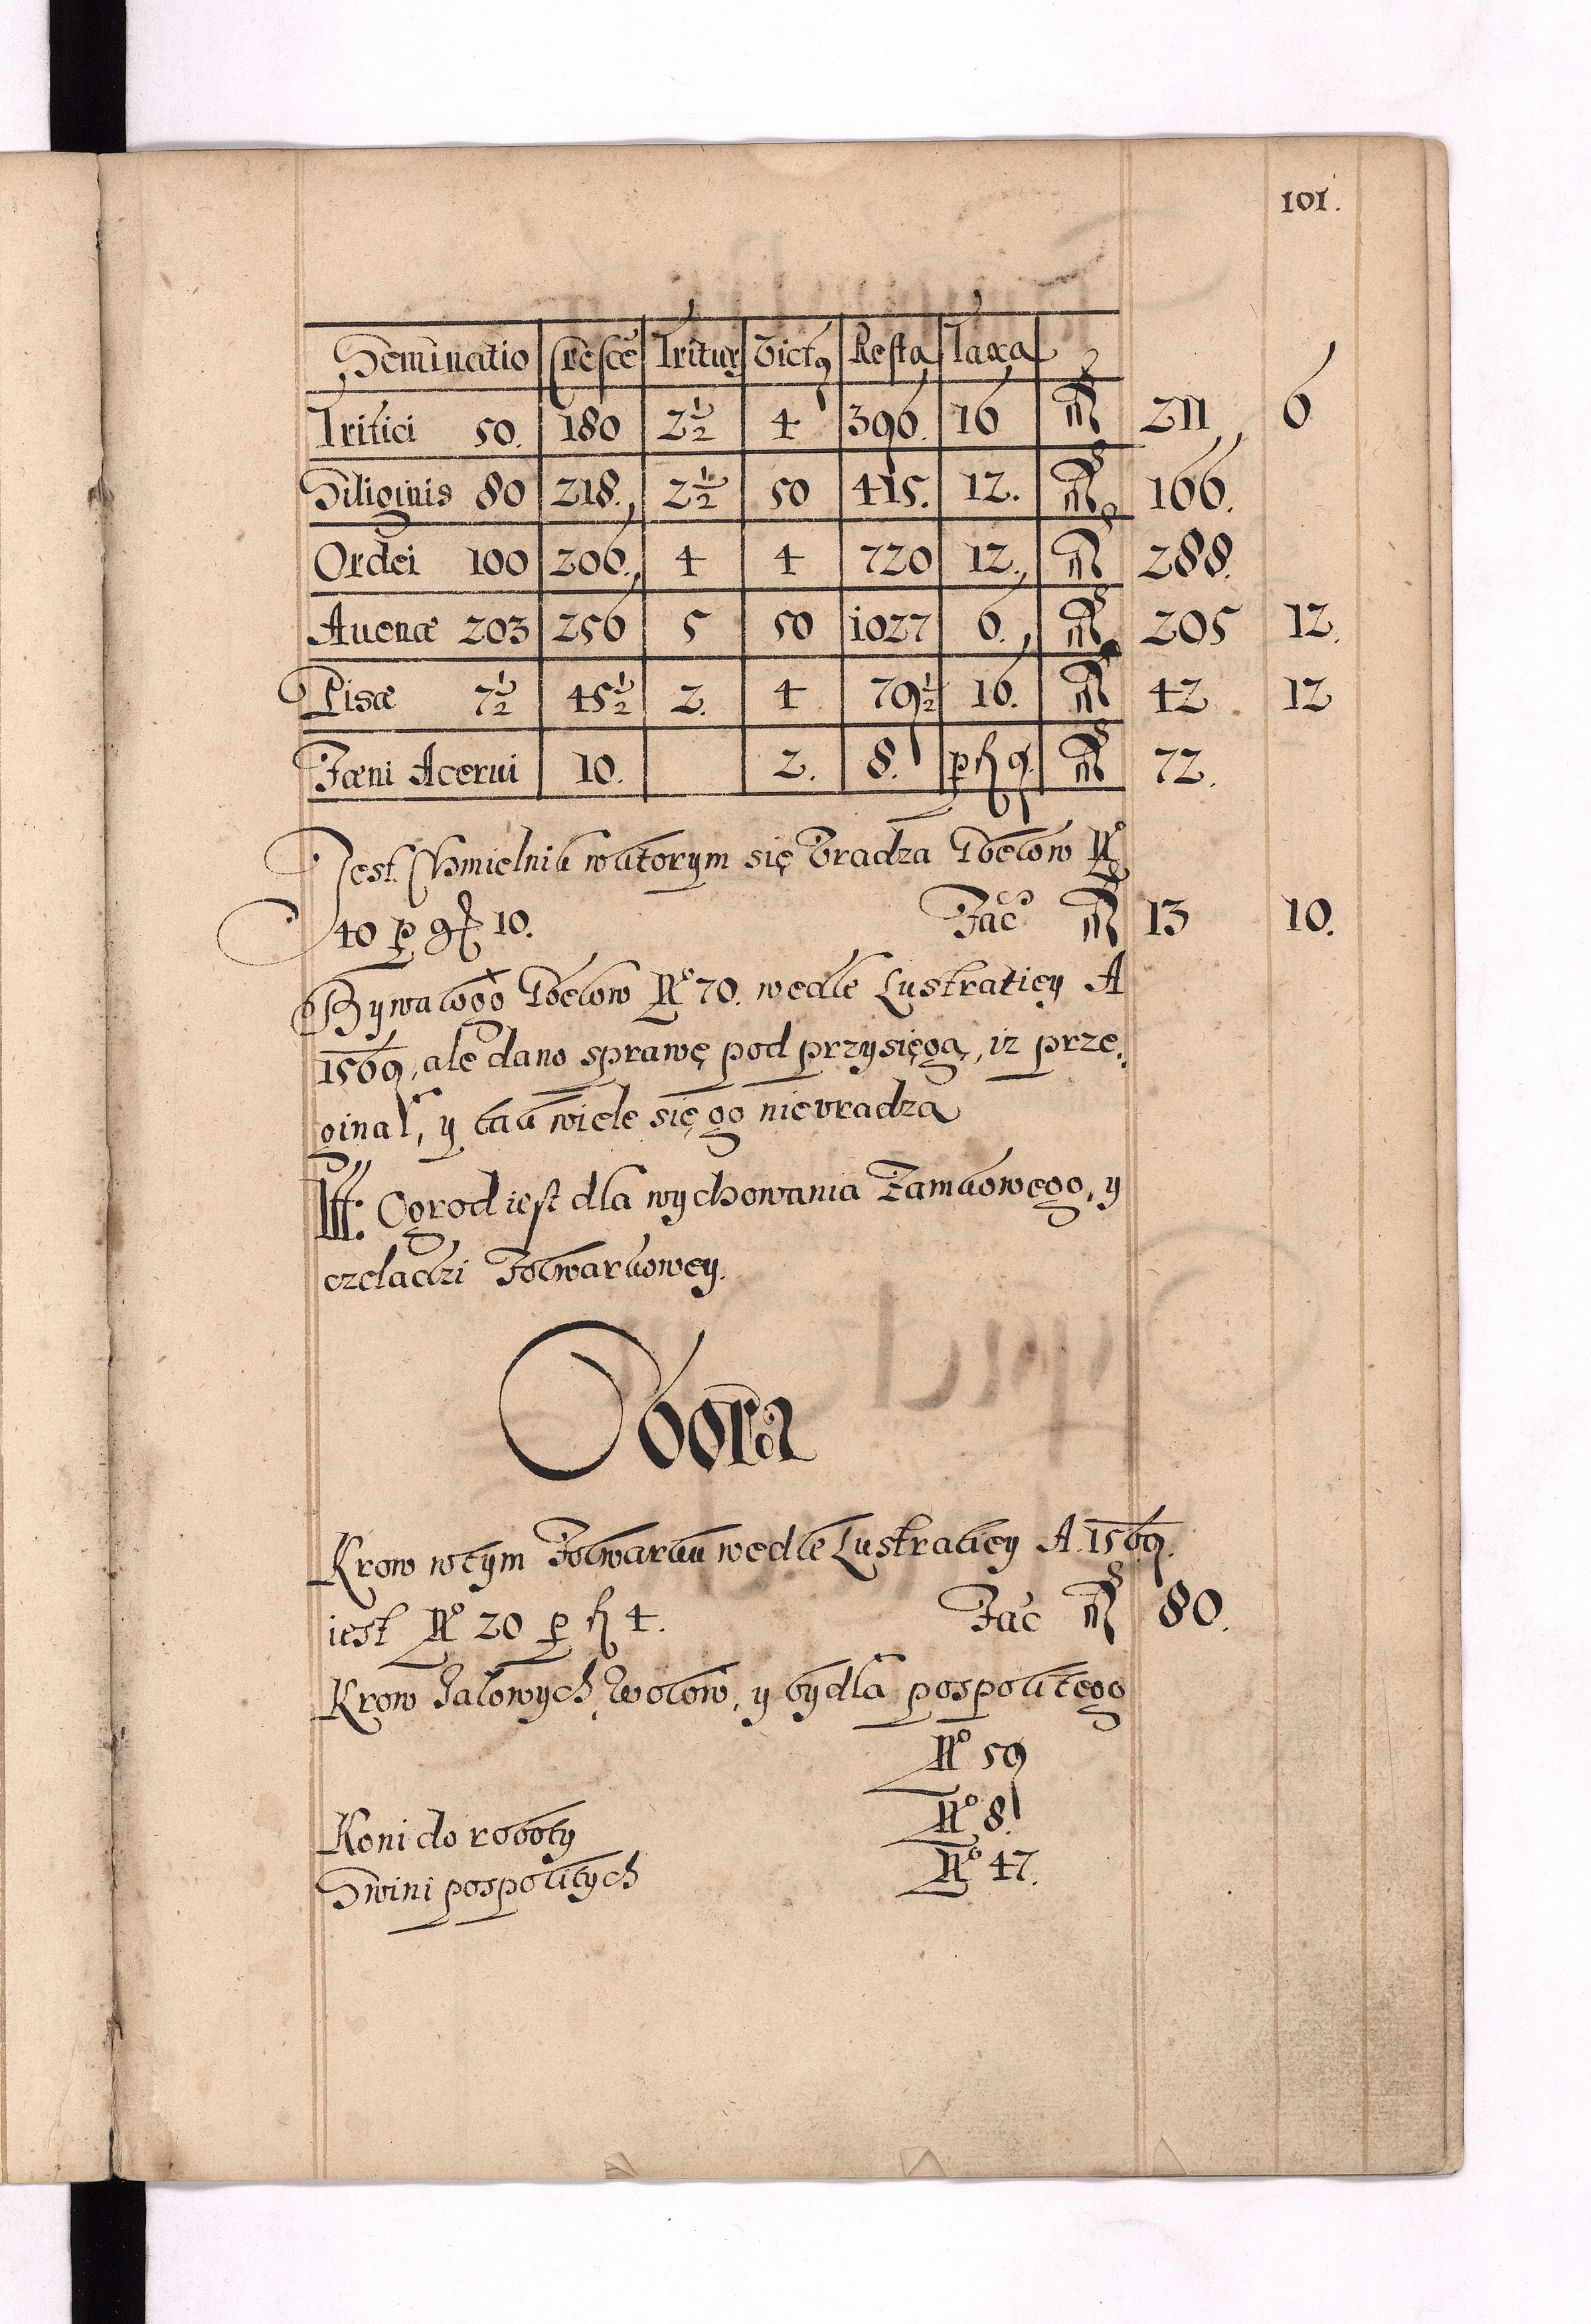 101.
Seminatio Cresce Tritur Victq Resta Taxa
Tritici 50. 180 2½ 4 396. 16 211 6
Siliginis 80 218. 2½ 50 415. 12. 166.
Ordei 100 206. 4 4 720 12. 288.
Auenæ 203 256 5 50 1027 6. 205 12.
Pisæ 7½ 45½ 2. 4 79½ 16. 42 12
Fæni Acerui 10. 2. 8. p fl 9. 72.
Jest Chmielnik wktorym się Vradza Tbelow Nº
40 p gr 10. Fac 13 10.
Bywalogo Tbelow Nº 70. wedle Lustratiey A
1569, ale dano sprawę pod przysięgą, iz prze,
ginął, y tak wiele się go nievradza
Itt: Ogrod iest dla wychowania Zamkowego, y
czeladzi Folwarkowey.
Obora
Krow wtym Folwarku wedle Lustratiey A. 1569.
iest Nº 20 p fl 4. Fac 80.
Krow Jalowych, Wolow, y bydła pospolitego
Nº 59
Koni do roboty Nº 8.
Swini pospolitych Nº 47.